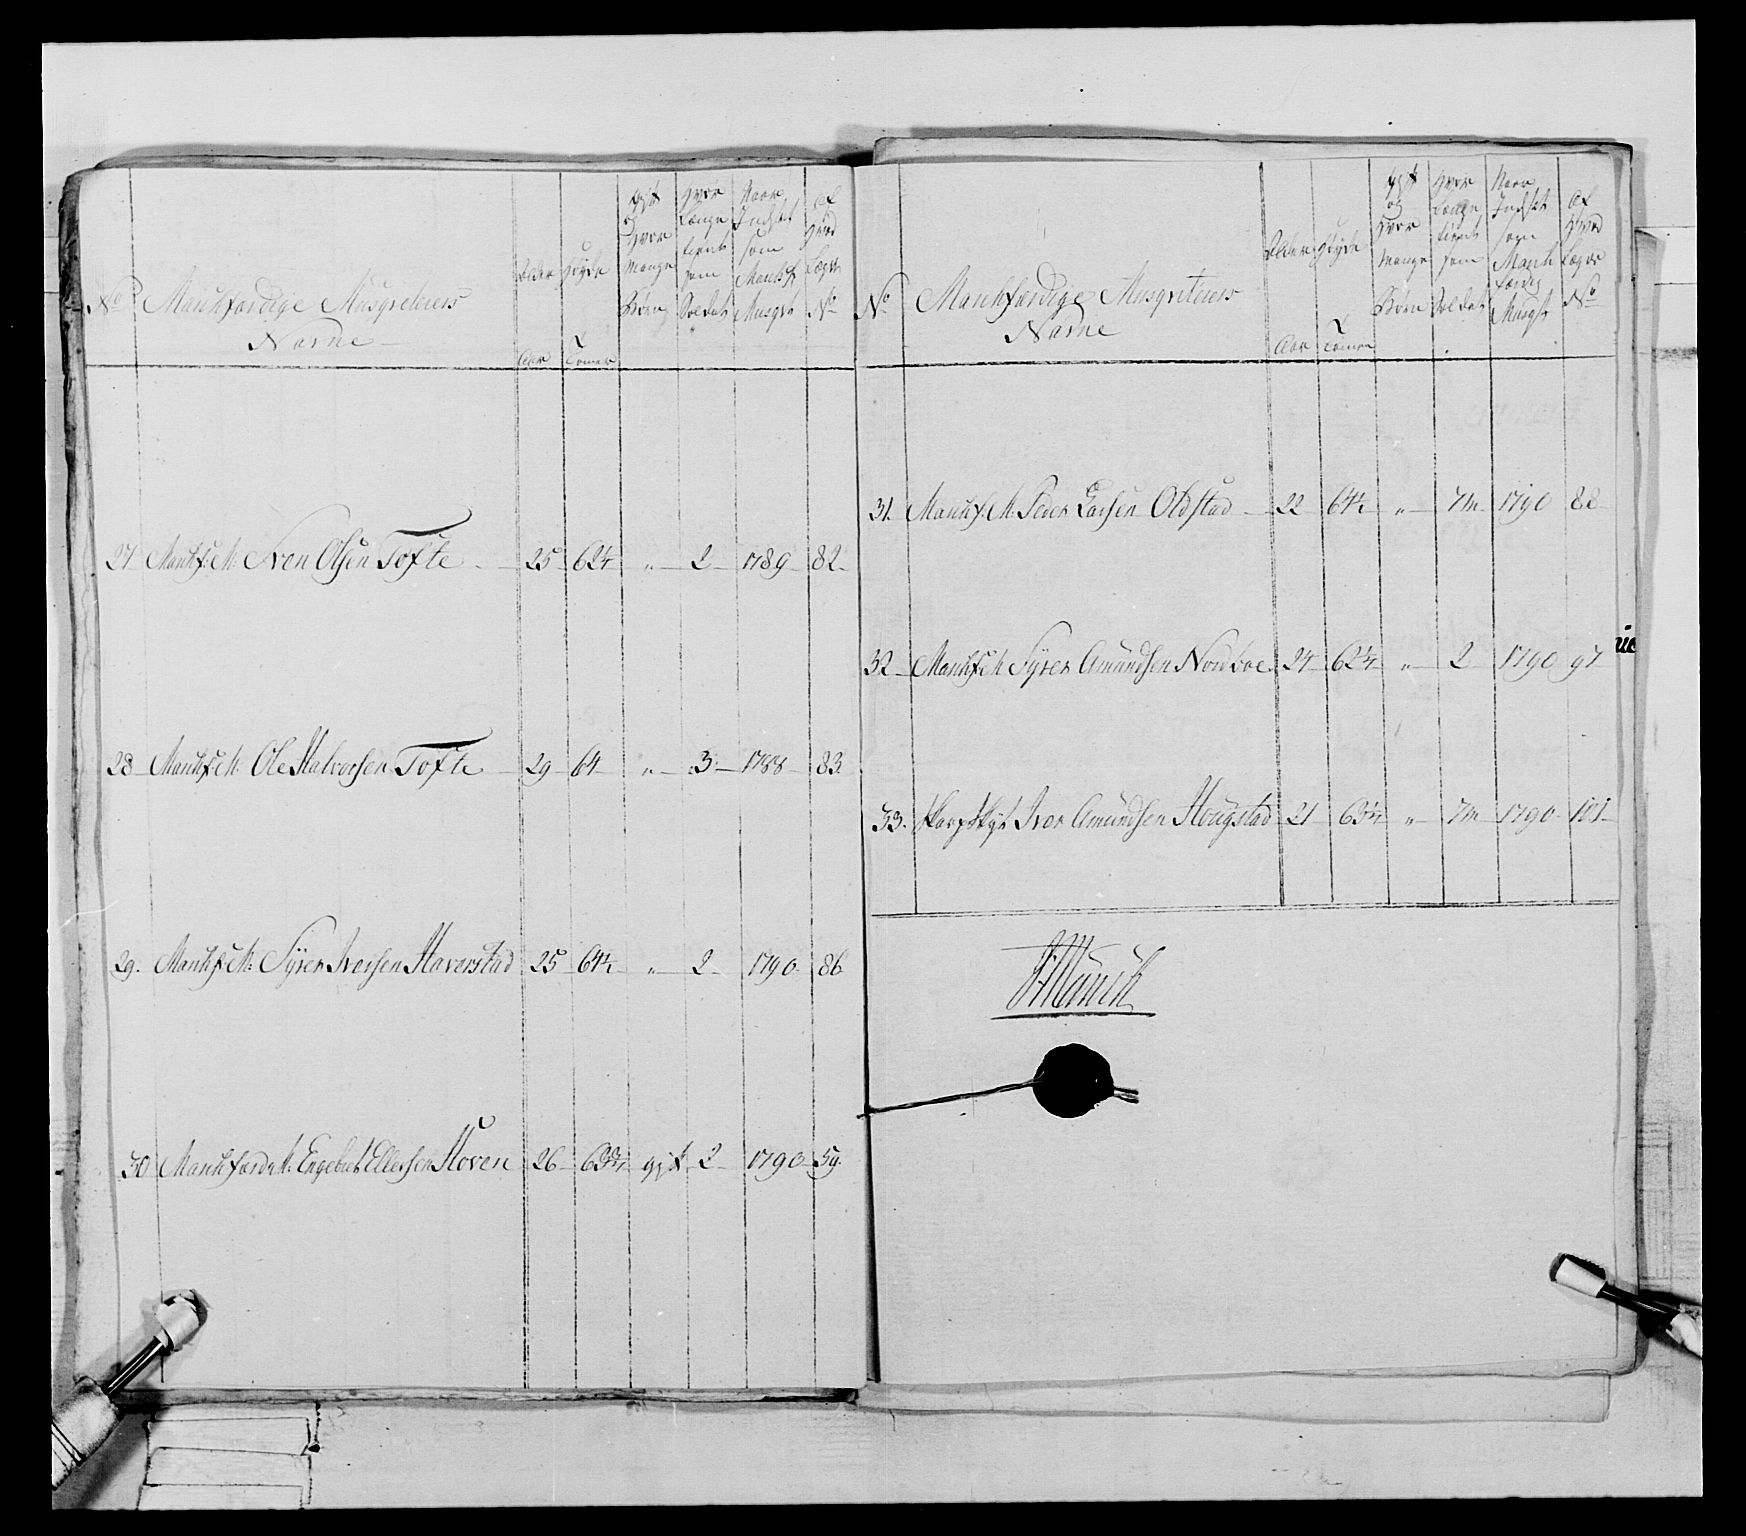 No
Mankfærdige Musqveteers
Navne
Alder
Aar
Høyde
Tomer
gift og Hvor Mange Børn
Hvor Længe tient som Soldat
Naar Indsat som Mankf. Musqvt
Af Hved Lægs No
27 Mankf: M: Sven Olsen Tofte 25 62¼ „ 2 1789 82
28 Mankf: M: Ole Halvorsen Tofte 29 64 „ 3 1788 83
29. Mankf: M: Syver Iversen Haverstad 25 64½ „ 2 1790 86
30 Mankfærd: M: Engebret Ellefsen Hoven 26 63¾ gift 2 1790 59
No
Mankfærdige Musqveteers
Navne
Alder
Aar
Høyde
Tomer
gift og Hvor Mange Børn
Hvor Længe tient som Soldat
Naar Indsat som Mankfærdig Musqt
Af Hved Lægs No
31. Mankf. M. Peder Larsen Oldstad 22 64½ „ 7m 1790 88
32 Mankf M Syver Amundsen Nordboe 24 62¼ „ 2 1790 97
33. Skarpskyt Iver Amundsen Hougstad 21 63¼ „ 7m 1790 101
Munch